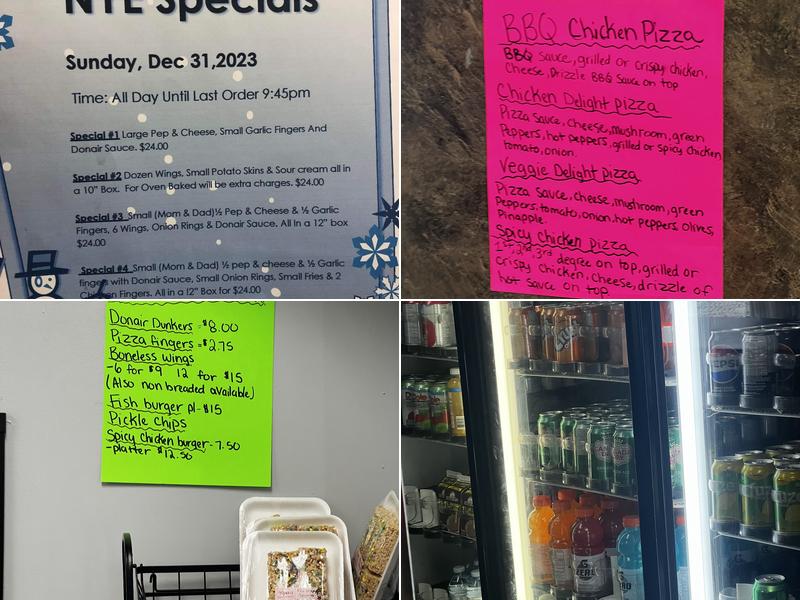 NYE Specials
Sunday, Dec 31,2023
Time: All Day Until Last Order 9:45pm
Special #1 Large Pep & Cheese, Small Garlic Fingers And
Donair Sauce. $24.00
Special #2 Dozen Wings, Small Potato Skins & Sour cream all in
a 10" Box. For Oven Baked will be extra charges. $24.00
Special #3 Small (Mom & Dad)½ Pep & Cheese & ½ Garlic
Fingers, 6 Wings, Onion Rings & Donair Sauce. All In a 12" box
$24.00
Special #4 Small (Mom & Dad) ½ pep & cheese & ½ Garlic
fingers with Donair Sauce, Small Onion Rings, Small Fries & 2
Chicken Fingers. All in a 12" Box for $24.00
BBQ Chicken Pizza
BBQ sauce, grilled or crispy chicken,
Cheese, Drizzle BBQ Sauce on top
Chicken Delight pizza
Pizza Sauce, cheese, mushroom, green
Peppers, hot peppers, grilled or spicy chicken
tomato, onion.
Veggie Delight pizza
Pizza Sauce, cheese, mushroom, green
Peppers, tomato, onion, hot peppers, olives,
Pinapple.
Spicy Chicken pizza
1st, 2nd, 3rd degree on top, grilled or
crispy chicken, cheese, drizzle of
hot sauce on top.
Donair Dunkers = $8.00
Pizza fingers = $2.75
Boneless wings
-6 for $9 12 for $15
(Also non breaded available)
Fish burger pl - $15
Pickle chips
Spicy chicken burger - 7.50
-platter $12.50
pepsi
G
ZERO